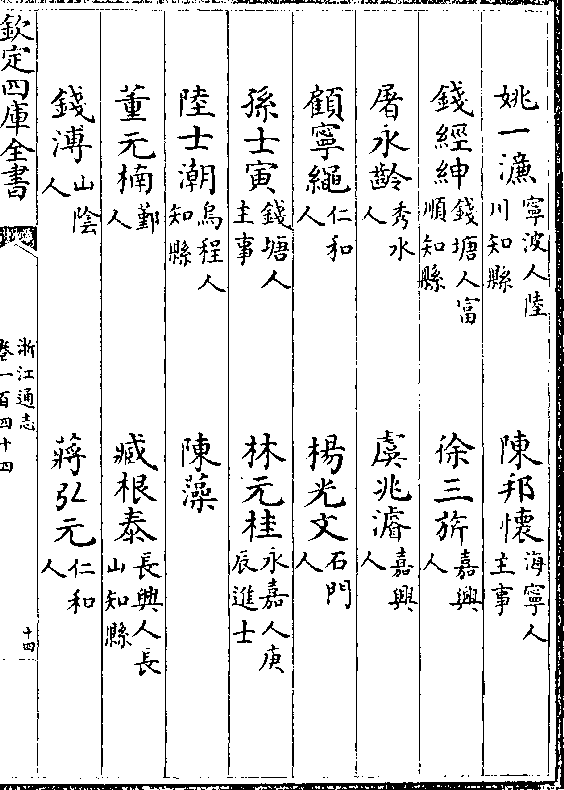 姚一濂寧波人陸川知縣　陳邦懷海寧人主事
錢經紳錢塘人富順知縣　徐三旂嘉興人
屠永齡秀水人　虞兆濬嘉興人
顧寧繩仁和人　楊光文石門人
孫士寅錢塘人主事　林元桂永嘉人庚辰進士
陸士潮烏程人知縣　陳藻
董元楠鄞人　臧根泰長興人長山知縣
錢溥山陰人　蔣弘元仁和人
欽定四庫全書　浙江通志卷一百四十四　十四